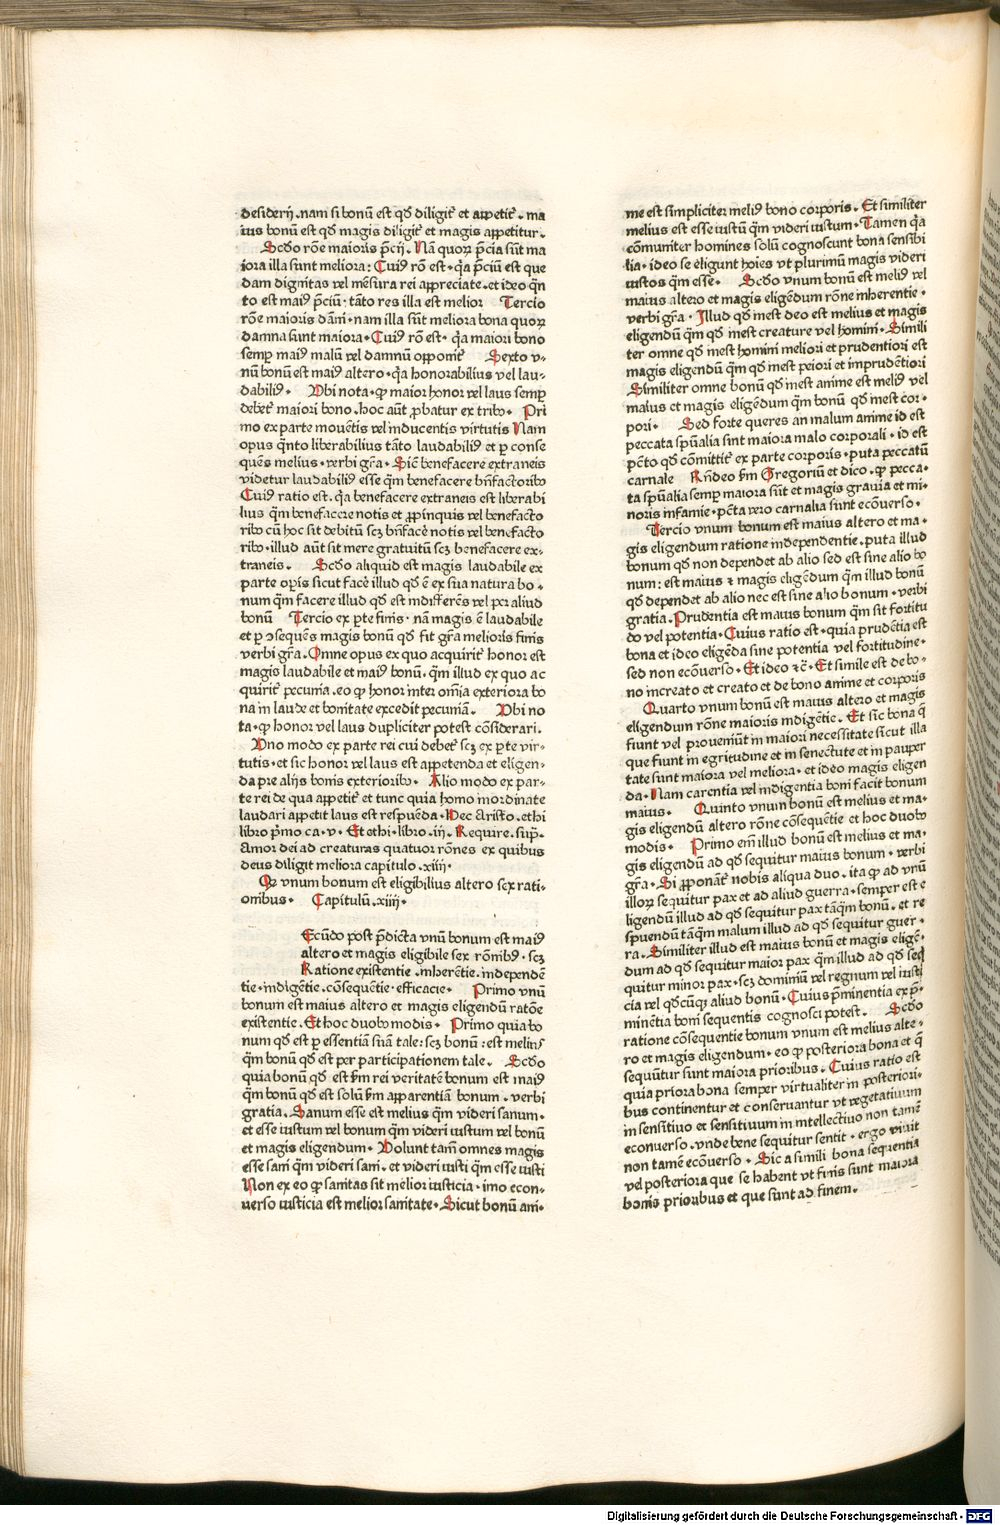 desiderij .nam si bonū est qd diligit᷑ et appetit᷑ . ma
ius bonū est qd magis diligit᷑ et magis appetitur.
Scdo rōne maioris p̄cij . Nā quoꝝ p̄cia sūt ma
iora illa sunt meliora: Cuiꝰ rō est · q̄a p̄ciū est que
dam dignitas vel mēsura rei appreciate .et ideo q̄n
to est maiꝰ p̄ciū · tāto res illa est melior Tercio
rōne maioris dāni · nam illa sūt meliora bona quoꝝ
damna sunt maiora · Cuiꝰ rō est · q̄a maiori bono
semꝑ maiꝰ malū vel damnū opponit᷑ Sexto v-
nū bonū est maiꝰ altero · q̄a honorabilius vel lau-
dabiliꝰ · Vbi nota · ꝙ maior honor vel laus semꝑ
debet᷑ maiori bono . hoc aūt ꝓbatur ex tribꝰ · Pri
mo ex parte mouētis vel inducentis virtutis Nam
opus q̄nto liberabilius tāto laudabiliꝰ et ꝑ conse
quēs melius · verbi gr̄a · Sic̄ benefacere extraneis
videtur laudabiliꝰ esse q̄m benefacere bn̄factoribꝰ
Cuiꝰ ratio est . q̄a benefacere extraneis est liberabi
lius q̄m benefacere notis et ꝓpinquis vel benefacto
ribꝰ cū hoc sit debitū scꝫ bn̄facē notis vel benefacto
ribꝰ · illud aūt sit mere gratuitū scꝫ benefacere ex-
traneis . Scdo aliquid est magis laudabile ex
parte oꝑis sicut facē illud qd ē ex sua natura bo-
num q̄m facere illud qd est indifferēs vel ꝑ aliud
bonū Tercio ex ꝑte finis · nā magis ē laudabile
et ꝑ ꝯsequēs magis bonū qd fit gr̄a melioris finis
verbi gr̄a . Omne opus ex quo acquirit᷑ honor est
magis laudabile et maiꝰ bonū . q̄m illud ex quo ac
quirit᷑ pecunia . eo ꝙ honor inter om̄ia exteriora bo
na in laude et bonitate excedit pecuniā . Vbi no
ta · ꝙ honor vel laus dupliciter potest cōsiderari.
Vno modo ex parte rei cui debet᷑ scꝫ ex ꝑte vir-
tutis · et sic honor vel laus est appetenda et eligen-
da pre alijs bonis exterioribꝰ . Alio modo ex par-
te rei de qua appetit᷑ et tunc quia homo inordinate
laudari appetit laus est respuēda · Hec Aristo . ethi
libro p̄mo ca . v · Et ethi · libro .iij. Require .sup̄.
Amor dei ad creaturas quatuor rōnes ex quibus
deus diligit meliora capitulo .xiiij.
Qꝫ vnum bonum est eligibilius altero sex rati-
onibus · Capitulū .xiiij.
Ecūdo post p̄dicta vnū bonum est maiꝰ
altero et magis eligibile sex rōnibꝰ . scꝫ
Ratione existentie .inherētie .independē
tie · indigētie . cōsequētie · efficacie · Primo vnū
bonum est maius altero et magis eligendū ratōe
existentie . Et hoc duobꝰ modis · Primo quia bo
num qd est ꝑ essentiā suā tale : scꝫ bonū : est meliꝰ
q̄m bonū qd est per participationem tale . Scdo
quia bonū qd est fm rei veritatē bonum est maiꝰ
q̄m bonū qd est solū fm apparentiā bonum . verbi
gratia . Sanum esse est melius q̄m videri sanum ·
et esse iustum vel bonum q̄m videri iustum vel bonū
et magis eligendum · Volunt tam̄ omnes magis
esse sani q̄m videri sani . et videri iusti q̄m esse iusti
Non ex eo ꝙ sanitas sit melior iusticia · imo econ-
uerso iusticia est melior sanitate · Sicut bonū ani-
me est simpliciter meliꝰ bono corporis . Et similiter
melius est esse iustū q̄m videri iustum · Tamen q̄a
cōmuniter homines solū cognoscunt bona sensibi
lia · ideo se eligunt hoīes vt plurimū magis videri
iustos q̄m esse · Scdo vnum bonū est meliꝰ vel
maius altero et magis eligēdum rōne inherentie ·
verbi gr̄a . Illud qd inest deo est melius et magis
eligendū q̄m qd inest creature vel homini · Simili
ter omne qd inest homini meliori et prudentiori est
magis eligendū q̄m qd inest peiori et imprudētiori
Similiter omne bonū qd inest anime est meliꝰ vel
maius et magis eligēdum q̄m bonū qd inest cor-
pori · Sed forte queres an malum anime id est
peccata spūalia sint maiora malo corporali · id est
pctō qd cōmittit᷑ ex parte corporis · puta peccatū
carnale Rn̄deo fm Gregoriū et dico . ꝙ pecca-
ta spūalia semꝑ maiora sūt et magis grauia et mi-
noris infamie · pctā vero carnalia sunt ecōuerso ·
Tercio vnum bonum est maius altero et ma-
gis eligendum ratione independentie . puta illud
bonum qd non dependet ab alio sed est sine alio bo
num : est maius ⁊ magis eligēdum q̄m illud bonū
qd dependet ab alio nec est sine alio bonum · verbi
gratia . Prudentia est maius bonum q̄m sit fortitu
do vel potentia · Cuius ratio est · quia prudētia est
bona et ideo eligēda sine potentia vel fortitudine ·
sed non ecōuerso · Et ideo ⁊c̄ · Et simile est de bo-
no increato et creato et de bono anime et corporis
Quarto vnum bonū est maius altero et magis
eligendum rōne maioris indigētie . Et sic bona q̄
fiunt vel proueniūt in maiori necessitate sicut illa
que fiunt in egritudine et in senectute et in pauper
tate sunt maiora vel meliora · et ideo magis eligen
da · Nam carentia vel indigentia boni facit bonum
maius · Quinto vnum bonū est melius et ma-
gis eligendū altero rōne cōsequētie et hoc duobꝰ
modis · Primo em̄ illud bonū est melius et ma-
gis eligendū ad qd sequitur maius bonum · verbi
gr̄a · Si ꝓponāt᷑ nobis aliqua duo . ita ꝙ ad vnū
illoꝝ sequitur pax et ad aliud guerra · semper est e
ligendū illud ad qd sequitur pax tāq̄m bonū . et re
spuendū tāq̄m malum illud ad qd sequitur guer-
ra . Similiter illud est maius bonū et magis eligē-
dum ad qd sequitur maior pax q̄m illud ad qd seq̄
quitur minor pax · scꝫ dominiū vel regnum vel iusti
cia vel qdcūqꝫ aliud bonū · Cuius p̄minentia ex p̄-
minētia boni sequentis cognosci potest . Scdo
ratione cōsequentie bonum vnum est melius alte-
ro et magis eligendum · eo ꝙ posteriora bona et q̄
sequūtur sunt maiora prioribus . Cuius ratio est
quia priora bona semper virtualiter in posteriori-
bus continentur et conseruantur vt vegetatiuum
in sensitiuo et sensitiuum in intellectiuo non tamē
econuerso . vnde bene sequitur sentit · ergo viuit
non tamē ecōuerso · Sic a simili bona sequentia
vel posteriora que se habent vt finis sunt maiora
bonis prioribus et que sunt ad finem .
Digitalisierung gefördert durch die Deutsche Forschungsgemeinschaft - DFG